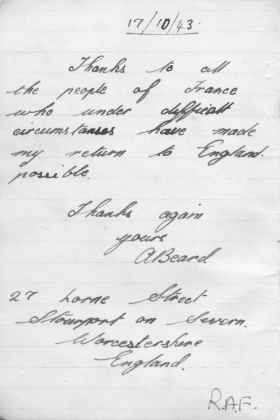 17/10/43.
Thanks to all
the people of France
who under difficult
circumstances have made
my return to England.
possible.
Thanks again
yours
A Beard
27 Lorne Street
Stourport on Severn.
Worcestershire
England.
R.A.F.